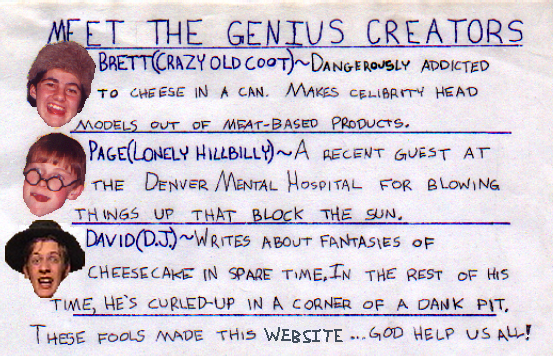 MEET THE GENIUS CREATORS
BRETT(CRAZY OLD COOT)~DANGEROUSLY ADDICTED
TO CHEESE IN A CAN. MAKES CELIBRITY HEAD
MODELS OUT OF MEAT-BASED PRODUCTS.
PAGE(LONELY HILLBILLY)~A RECENT GUEST AT
THE DENVER MENTAL HOSPITAL FOR BLOWING
THINGS UP THAT BLOCK THE SUN.
DAVID(D.J.)~WRITES ABOUT FANTASIES OF
CHEESECAKE IN SPARE TIME, IN THE REST OF HIS
TIME, HE'S CURLED-UP IN A CORNER OF A DANK PIT.
THESE FOOLS MADE THIS WEBSITE ...GOD HELP US ALL!